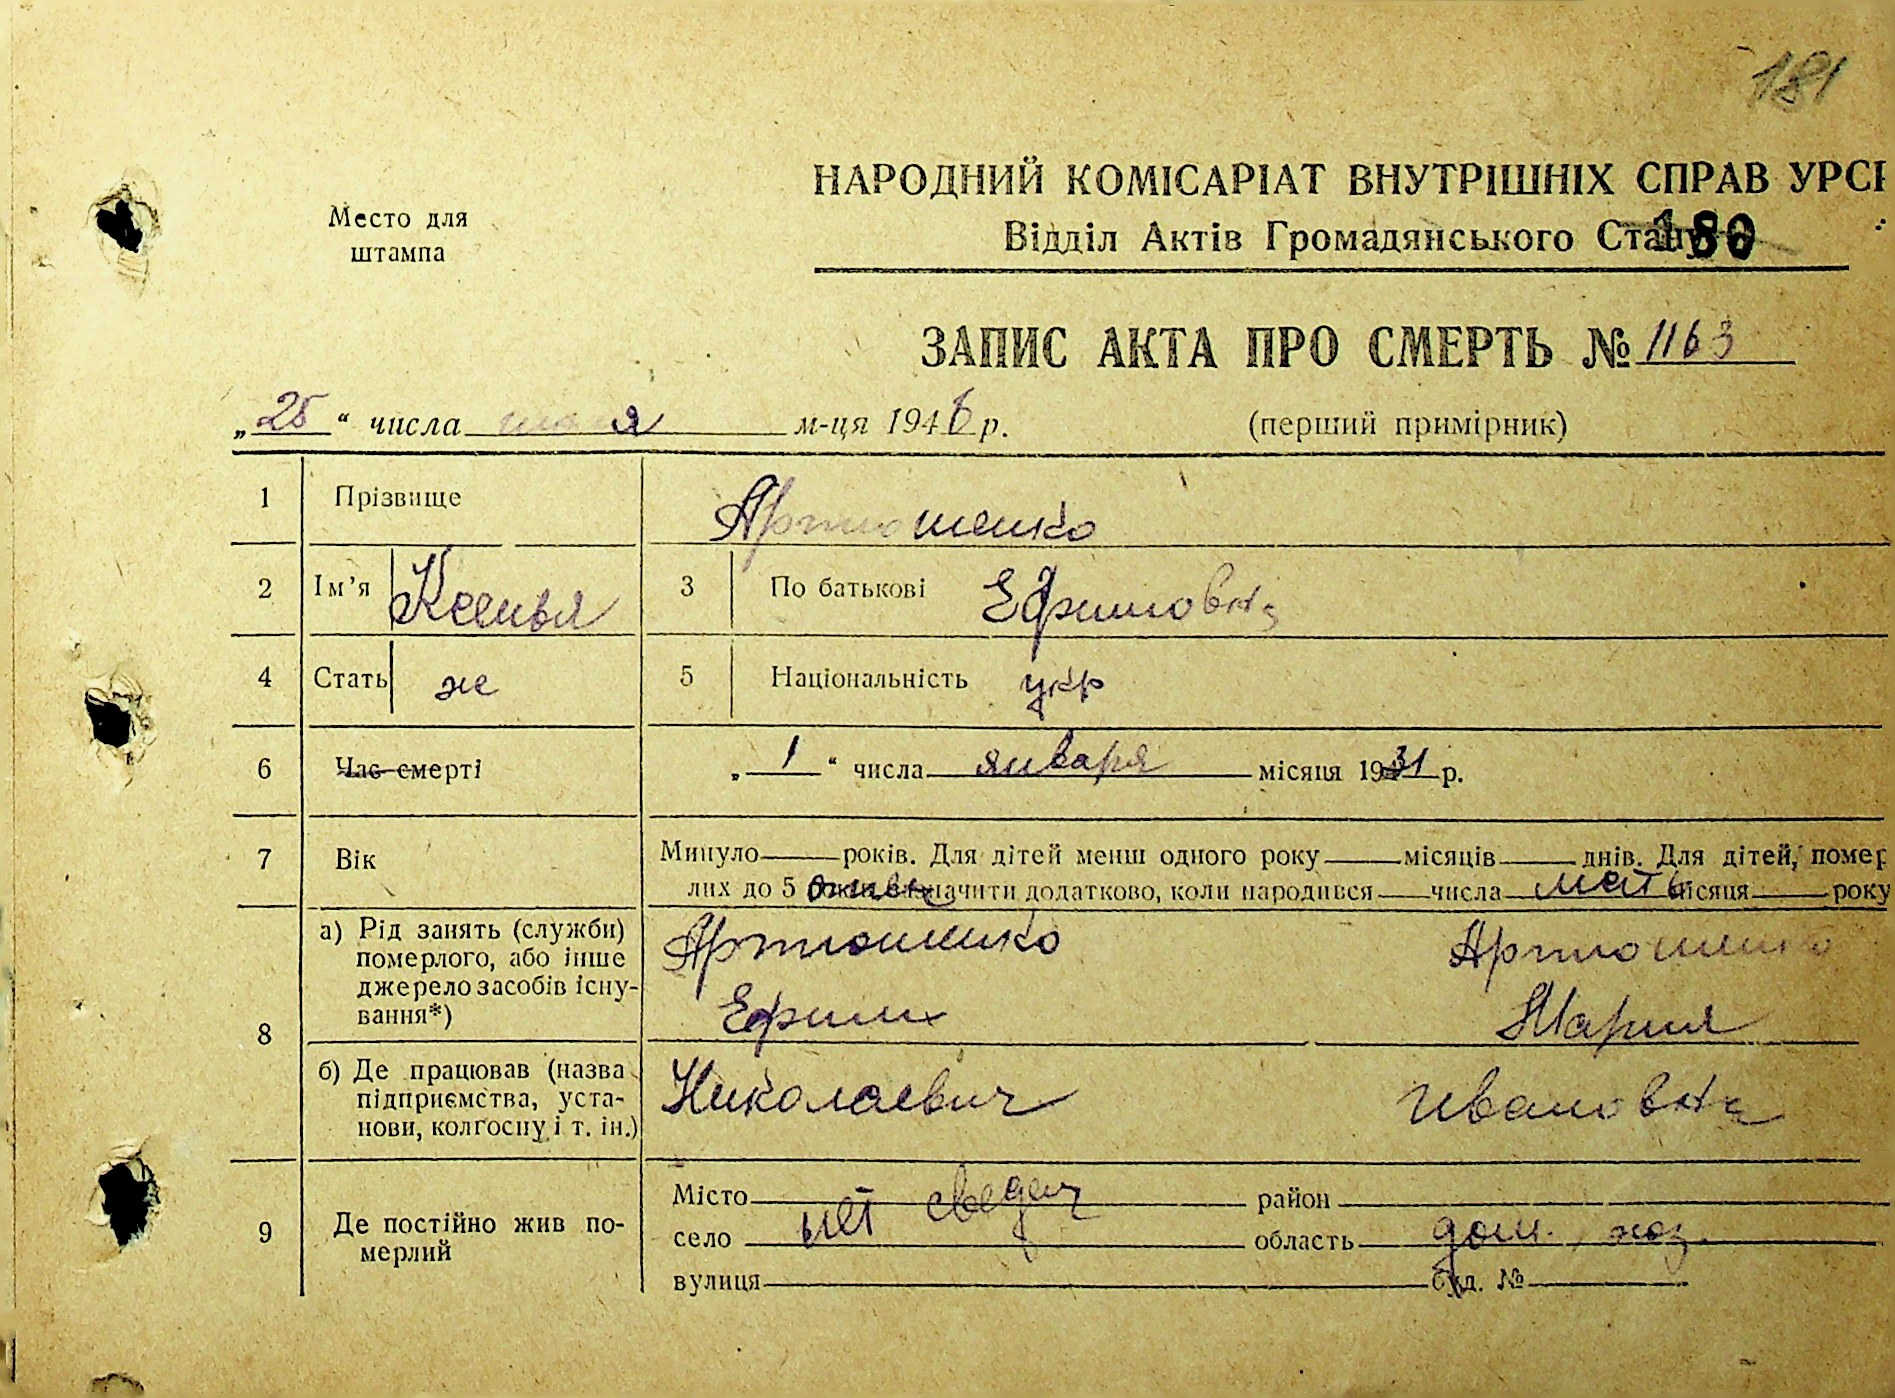 181
НАРОДНИЙ КОМІСАРІАТ ВНУТРІШНІХ СПРАВ УРСР
Место для штампа
Відділ Актів Громадянського Стану
180
ЗАПИС АКТА ПРО СМЕРТЬ № 1163
„25“ числа мая м-ця 1946 р. (перший примірник)
1 Прізвище Артюшенко
2 Ім'я Ксенья 3 По батькові Ефимовна
4 Стать же 5 Національність укр
6 Час смерті „1“ числа января місяця 1931 р.
7 Вік Минуло років. Для дітей менш одного року місяців днів. Для дітей, помер
лих до 5 значити додатково, коли народився числа мать місяця року
8 а) Рід занять (служби) померлого, або інше джерело засобів існування*)
Артюшенко Артюшенко
Ефим Мария
б) Де працював (назва підприємства, установи, колгоспу і т. ін.)
Николаевич Ивановна
9 Де постійно жив померлий
Місто район
село нет сведен область дом. хоз.
вулиця буд. №